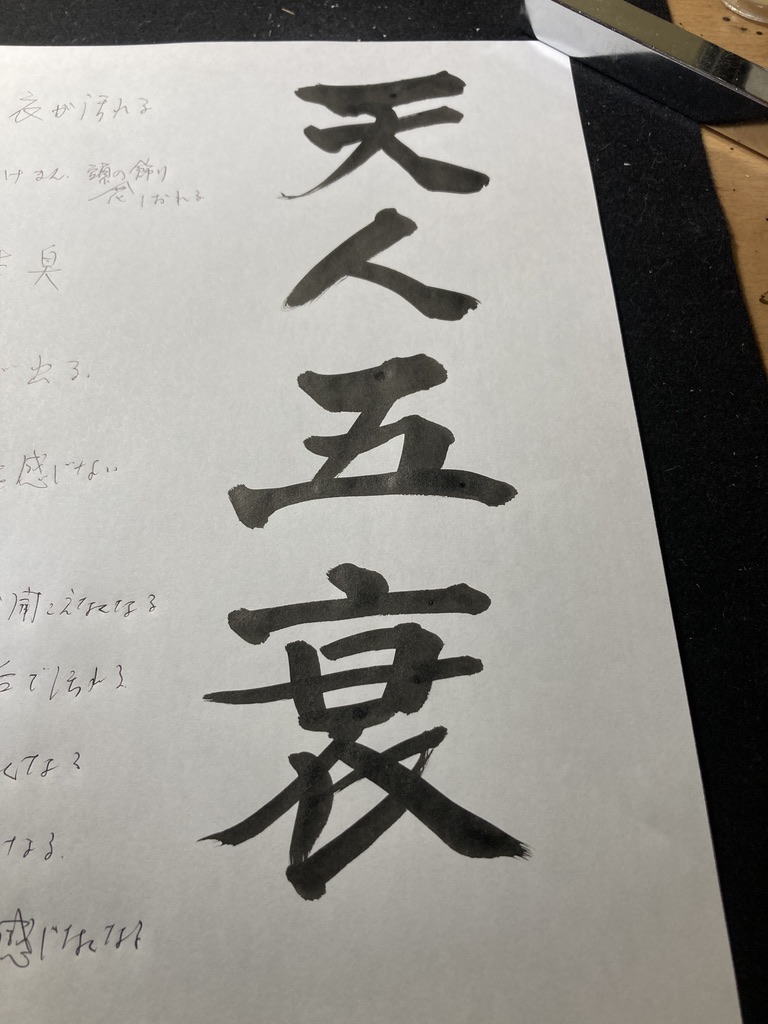 天人五衰
衣が汚れる
けまん 頭の飾り
花しおれる
臭
出る.
感じない
聞こえなくなる
で汚れる
くなる
なる.
感じなくなる